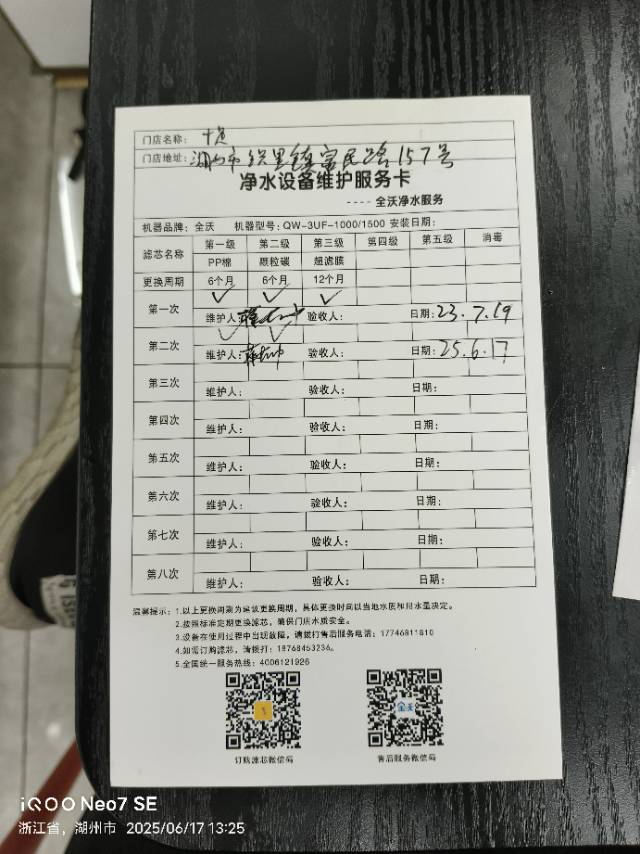 门店名称：
门店地址：湖州市织里镇富民路157号
净水设备维护服务卡
----全沃净水服务
机器品牌：全沃 机器型号：QW-3UF-1000/1500 安装日期：
滤芯名称 第一级 第二级 第三级 第四级 第五级 消毒
PP棉 颗粒碳 超滤膜
更换周期 6个月 6个月 12个月
第一次 ✓ ✓ ✓
维护人： 验收人： 日期：23.7.19
第二次 ✓ ✓
维护人： 验收人： 日期：25.6.17
第三次
维护人： 验收人： 日期：
第四次
维护人： 验收人： 日期：
第五次
维护人： 验收人： 日期：
第六次
维护人： 验收人： 日期：
第七次
维护人： 验收人： 日期：
第八次
维护人： 验收人： 日期：
温馨提示：1.以上更换周期为建议更换周期，具体更换时间以当地水质和用水量决定。
2.按照标准定期更换滤芯，确保门店水质安全。
3.设备在使用过程中出现故障，请拨打售后服务电话：17746811810
4.如需订购滤芯，请拨打：18768453236。
5.全国统一服务热线：4006121926
全沃
订购滤芯微信码 售后服务微信码
iQOO Neo7 SE
浙江省，湖州市 2025/06/17 13:25